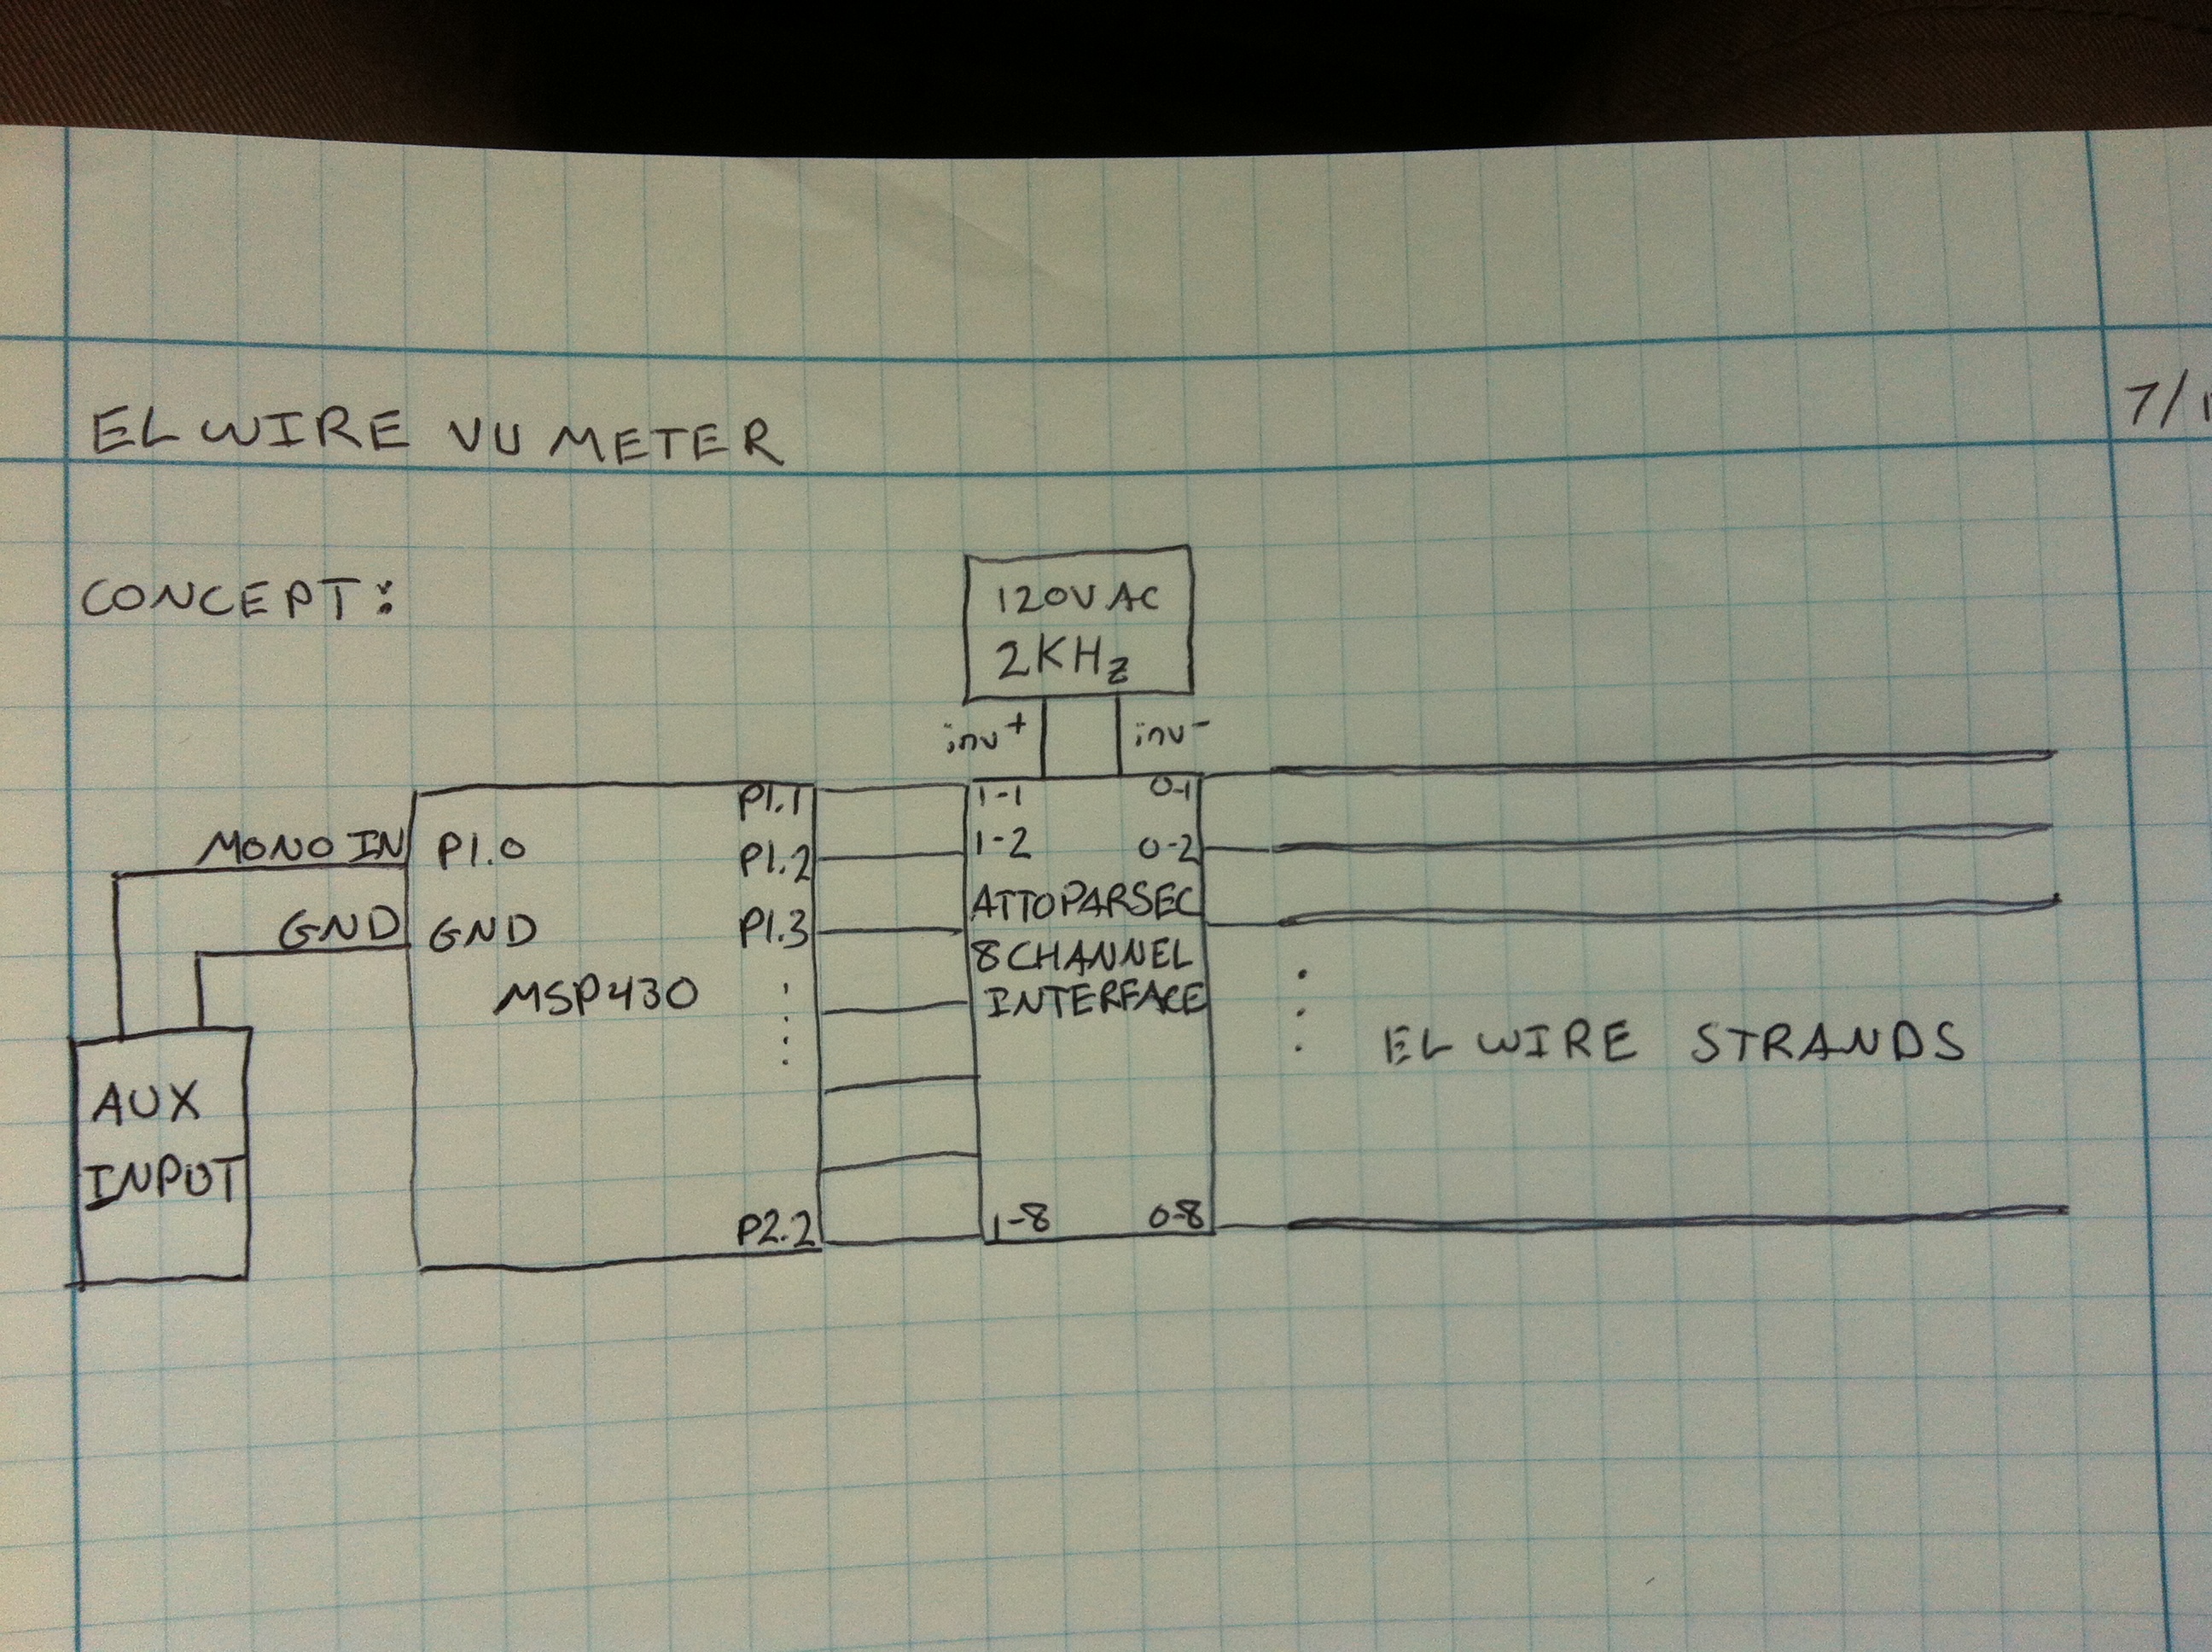 EL WIRE VU METER
7/1
CONCEPT:
120V AC
2KHz
inv+ inv-
P1.1 1-1 0-1
MONO IN P1.0 P1.2 1-2 0-2
ATTOPARSEC
GND GND P1.3
8 CHANNEL
MSP430 INTERFACE
EL WIRE STRANDS
AUX
INPUT
P2.2 1-8 0-8